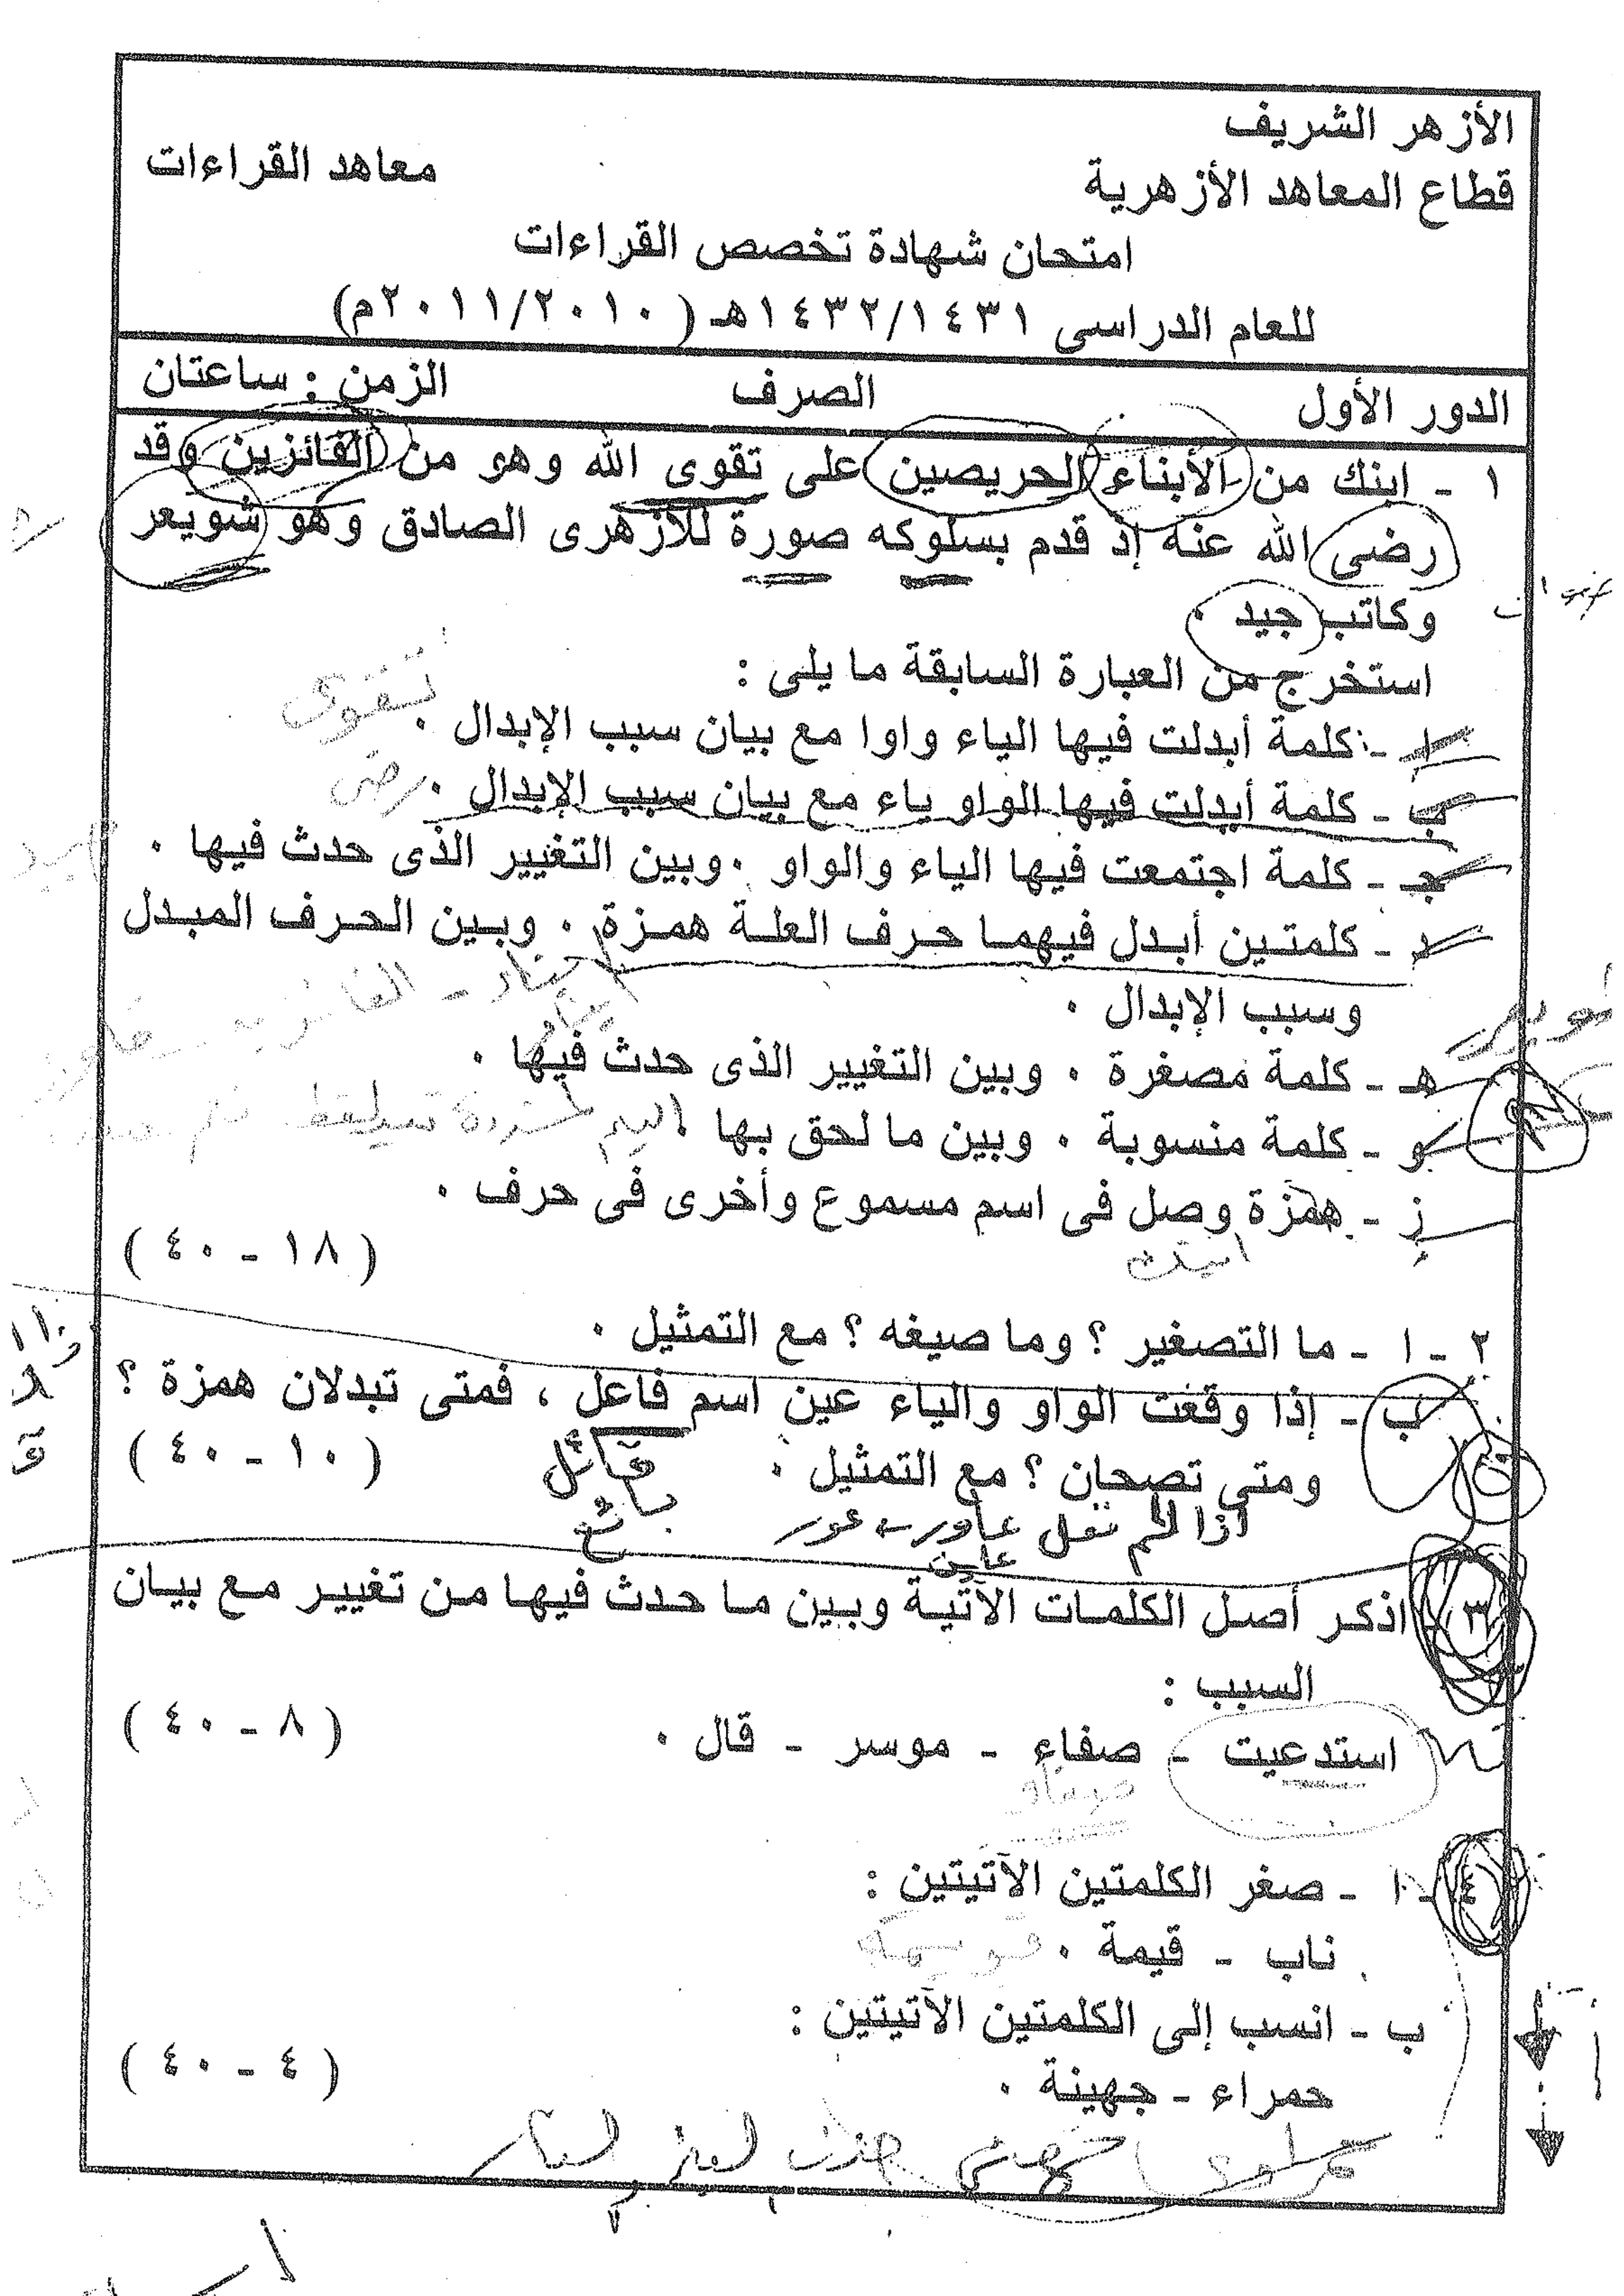 الأزهر الشريف
قطاع المعاهد الأزهرية
معاهد القراءات
امتحان شهادة تخصص القراءات
للعام الدراسى ١٤٣٢/١٤٣١هـ ( ٢٠١١/٢٠١٠م)
الدور الأول الصرف الزمن : ساعتان
١ - ابنك من الأبناء الحريصين على تقوى الله وهو من الفائزين وقد
رضى الله عنه إذ قدم بسلوكه صورة للأزهرى الصادق وهو شويعر
وكاتب جيد .
استخرج من العبارة السابقة ما يلى :
ا - كلمة أبدلت فيها الياء واوا مع بيان سبب الإبدال .
تقوى
ب - كلمة أبدلت فيها الواو ياء مع بيان سبب الإبدال .
رضى
جـ - كلمة اجتمعت فيها الياء والواو . وبين التغيير الذى حدث فيها .
د - كلمتين أبدل فيهما حرف العلة همزة . وبين الحرف المبدل
وسبب الإبدال .
هـ - كلمة مصغرة . وبين التغيير الذى حدث فيها .
و - كلمة منسوبة . وبين ما لحق بها .
ز - همزة وصل فى اسم مسموع وأخرى فى حرف .
ابنك
( ١٨ - ٤٠ )
٢ - ١ - ما التصغير ؟ وما صيغه ؟ مع التمثيل .
ب - إذا وقعت الواو والياء عين اسم فاعل ، فمتى تبدلان همزة ؟
ومتى تصحان ؟ مع التمثيل .
( ١٠ - ٤٠ )
قائل
بائع
اذا لم تعل عاور - عور
عاين
٣ - اذكر أصل الكلمات الآتية وبين ما حدث فيها من تغيير مع بيان
السبب :
استدعيت - صفاء - موسر - قال .
( ٨ - ٤٠ )
صفاو
٤ - ١ - صغر الكلمتين الآتيتين :
ناب - قيمة .
قويمة
ب - انسب إلى الكلمتين الآتيتين :
حمراء - جهينة .
( ٤ - ٤٠ )
حمراوى جهنى